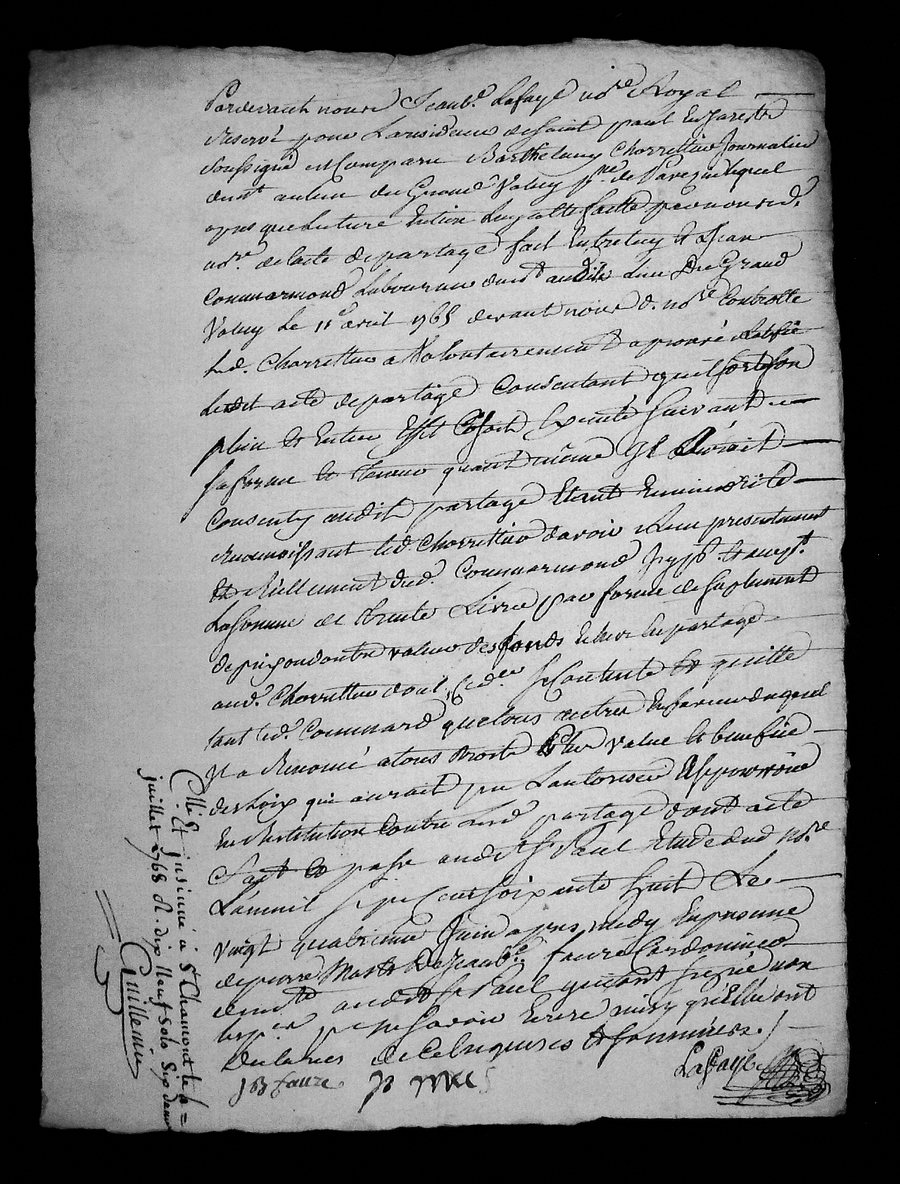 Pardevant nous Jean b.te Lafaye no.re Royal
Reservé pour La residence de Saint paul En Jarest
Soussigné est Comparu Barthelemy Chorrettier Journalier
dem.t au lieu du Grand Valuy p.sse de Pavezin lequel
apres que lecture Entiere luy a été faitte par nous d.
no.re de l'acte de partage fait Entre luy & Jean
Commarmond Laboureur dem.t audit Lieu Du Grand
Valuy Le 11e avril 1765 devant nous d. no.re Controllé
Led. Chorrettier a Volontairement aprouvé Ratifié
Ledit acte de partage Consentant qu'il sorte son
plein & Entier Effet & soit Exécuté suivant
sa forme & teneur quant même Il Auroit
Consenty audit partage Etant En minorité
reconoissant led. Chorrettier d'avoir Reçu presentement
& Réellement dud. Commarmond Icy p.t & accep.t
La somme de trente Livres par forme de suplement
de prix ou d'autre value des fonds Echus En partage
aud. Chorrettier dont se Contente & quitte
tant led. Commard que tous autres En faveur duquel
Il a Renoncé a tous droits plus value & benefice
des Loix qui auroit pu L'autoriser a se pourvoir
En restitution Contre Led. partage dont acte
Fait & passé aud. St. Paul Etude dud no.re
L'an mil sept Cent soixante huit Le
vingt quatrieme Juin apres midy En presence
de pierre Mas & De Jean b.te faure Cordonnier
dem.ts audit St Paul qui ont signé non
lesp.es pour ne savoir Ecrire ainsy qu'Elles ont
Declarées de Ce Enquises & sommées ./.
JB faure p mas Lafaye
C.llé Et insinué à St Chamont le
juillet 1768 R. dix Neuf Sols Six den
Guillemin